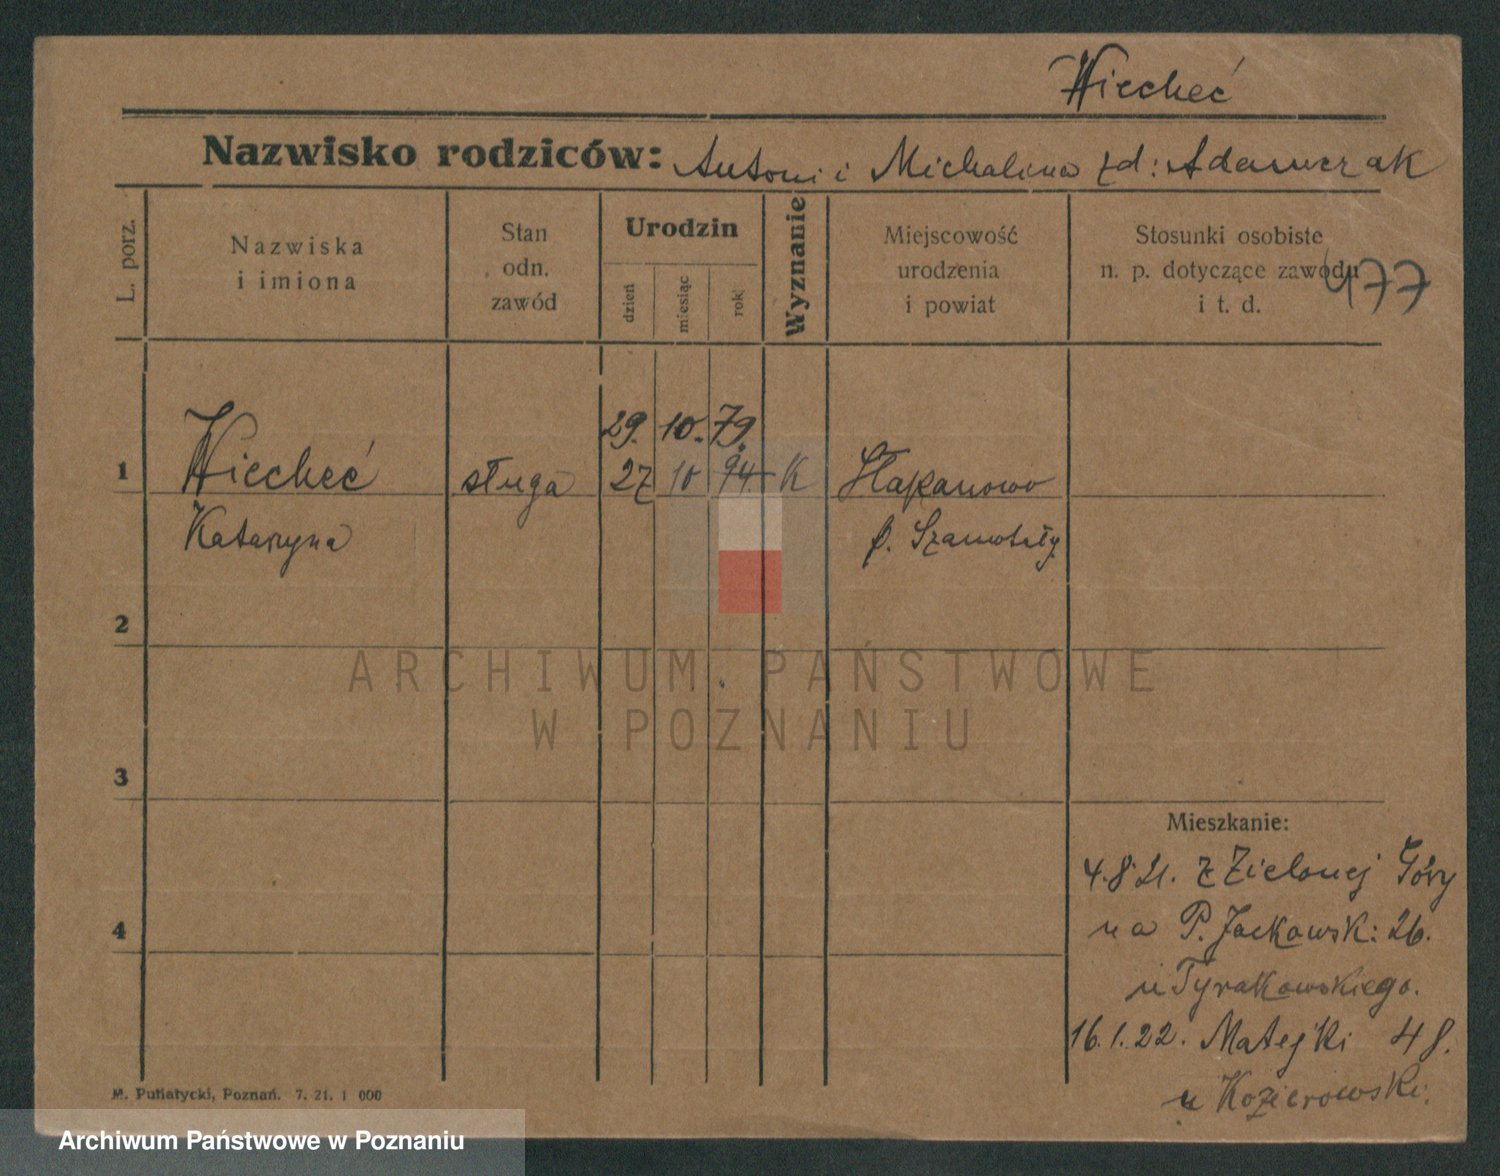 Wiecheć
Nazwisko rodziców: Antoni i Michalina zd: Adamczak
L. porz.
Nazwiska
i imiona
Stan
odn.
zawód
Urodzin
dzień
miesiąc
rok
Wyznanie
Miejscowość
urodzenia
i powiat
Stosunki osobiste
n. p. dotyczące zawodu
i t. d.
477
29. 10. 79.
1 Wiecheć sługa 27 10 94 K
Katarzyna p. Szamotuły
2
ARCHIWUM PAŃSTWOWE
W POZNANIU
3
Mieszkanie:
4.8.21. z Zielonej Góry
4
na P. Jackowsk: 26.
u Tyrakowskiego.
16.1.22. Matejki 48.
u Kozierowski.
M. Putiatycki, Poznań. 7. 21. 1 000
Archiwum Państwowe w Poznaniu